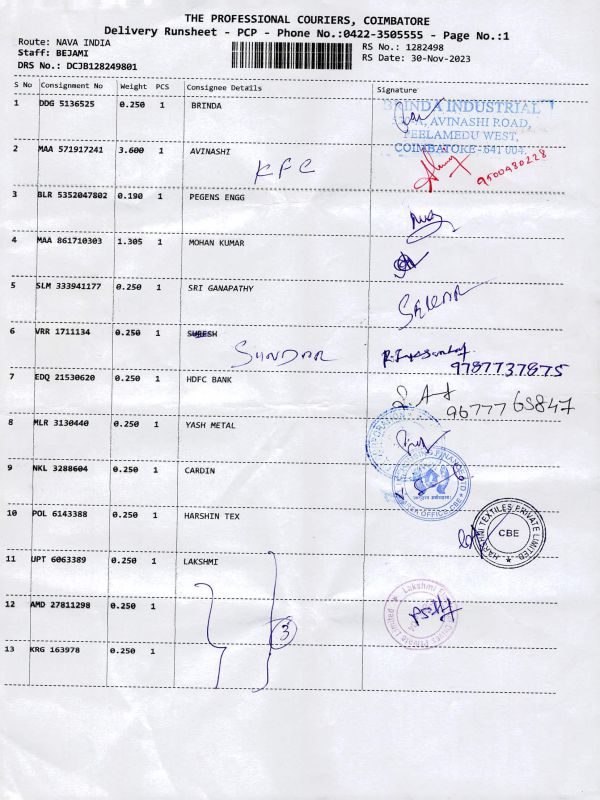 THE PROFESSIONAL COURIERS, COIMBATORE
Delivery Runsheet - PCP - Phone No.:0422-3505555 - Page No.:1
Route: NAVA INDIA
Staff: BEJAMI
DRS No.: DCJB128249801
RS No.: 1282498
RS Date: 30-Nov-2023
S No Consignment No Weight PCS Consignee Details Signature
1 DDG 5136525 0.250 1 BRINDA
BRINDA INDUSTRIAL
AVINASHI ROAD,
PEELAMEDU WEST,
COIMBATORE - 641 004.
2 MAA 571917241 3.600 1 AVINASHI
KFC
9500480228
3 BLR 5352047802 0.190 1 PEGENS ENGG
4 MAA 861710303 1.305 1 MOHAN KUMAR
5 SLM 333941177 0.250 1 SRI GANAPATHY
6 VRR 1711134 0.250 1 SURESH
SUNDAR
9787737875
7 EDQ 21530620 0.250 1 HDFC BANK
9677765847
8 MLR 3130440 0.250 1 YASH METAL
9 NKL 3288604 0.250 1 CARDIN
10 POL 6143388 0.250 1 HARSHIN TEX
HARSHNI TEXTILES PRIVATE LIMITED
CBE
11 UPT 6063389 0.250 1 LAKSHMI
12 AMD 27811298 0.250 1
3
Lakshmi
Private Limited
13 KRG 163978 0.250 1